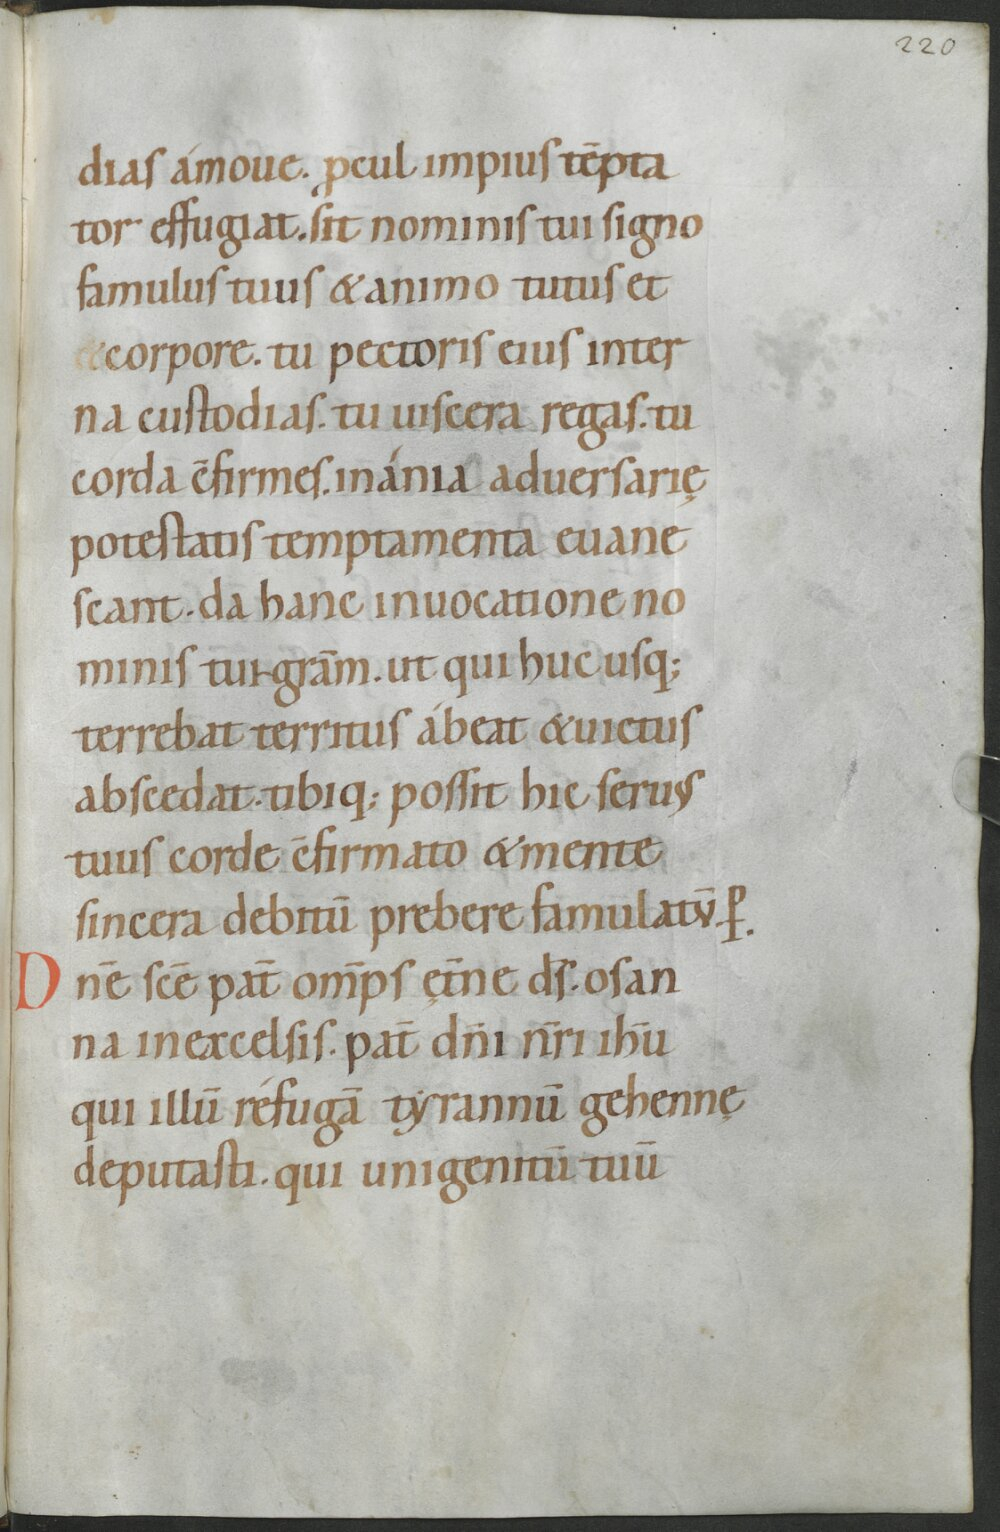 220
dias ámoue. ꝓcul impius tēpta
tor effugiat. sit nominis tui signo
famulus tuus & animo tutus et
& corpore. tu pectoris eius inter
na custodias. tu uiscera regas. tu
corda c̄firmes. inánia aduersarię
potestatis temptamenta euane
scant. da hanc inuocatione no
minis tui grām. ut qui huc usq;
terrebat territus ábeat & uictus
abscedat. tibiq; possit hic seruus
tuus corde c̄firmato & mente
sincera debitū prebere famulatū. ꝑ.
Dn̄e sc̄e pat̄ om̄ps ęt̄ne ds̄. osan
na in excelsis. pat̄ dn̄i n̄ri ihū
qui illū réfugā tẏrannū gehennę
deputasti. qui unigenitū tuū